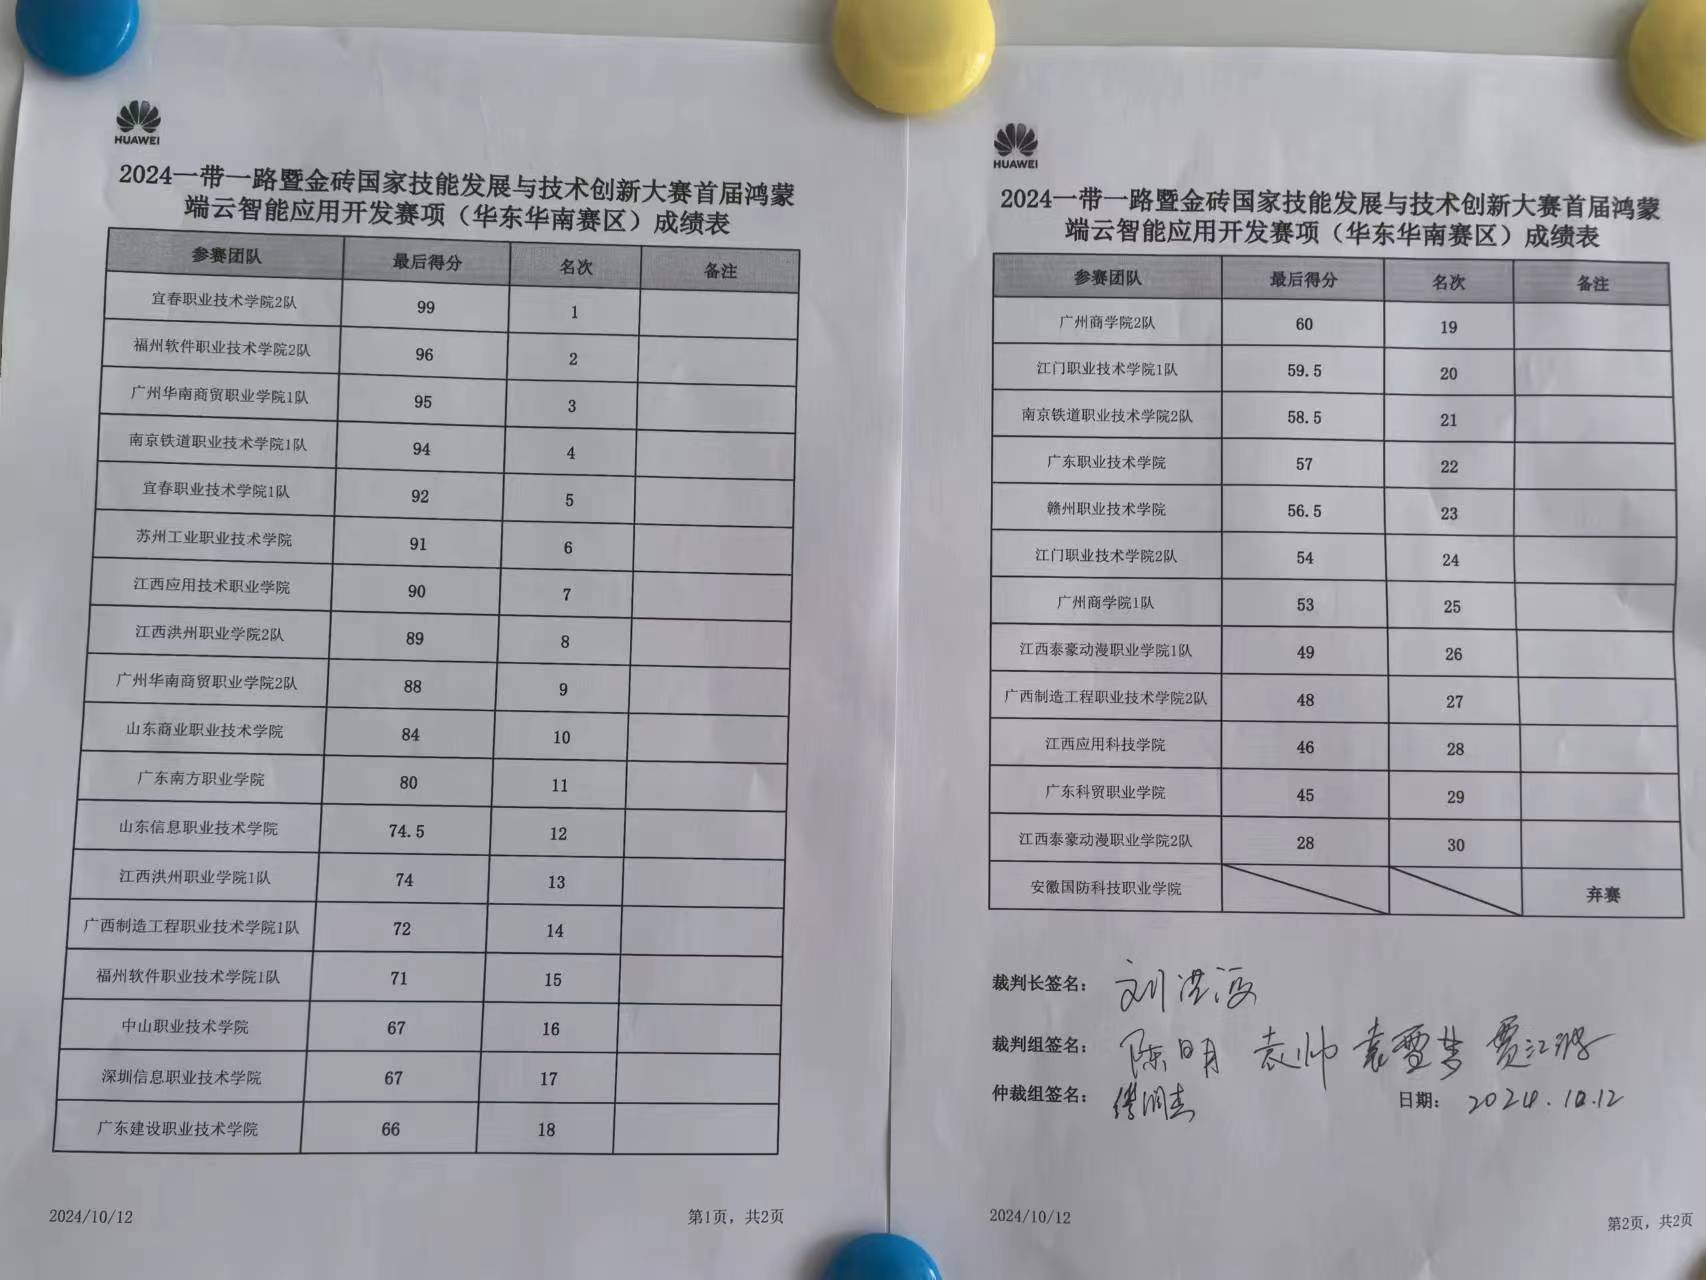 HUAWEI
2024一带一路暨金砖国家技能发展与技术创新大赛首届鸿蒙
端云智能应用开发赛项（华东华南赛区）成绩表
参赛团队 最后得分 名次 备注
宜春职业技术学院2队 99 1
福州软件职业技术学院2队 96 2
广州华南商贸职业学院1队 95 3
南京铁道职业技术学院1队 94 4
宜春职业技术学院1队 92 5
苏州工业职业技术学院 91 6
江西应用技术职业学院 90 7
江西洪州职业学院2队 89 8
广州华南商贸职业学院2队 88 9
山东商业职业技术学院 84 10
广东南方职业学院 80 11
山东信息职业技术学院 74.5 12
江西洪州职业学院1队 74 13
广西制造工程职业技术学院1队 72 14
福州软件职业技术学院1队 71 15
中山职业技术学院 67 16
深圳信息职业技术学院 67 17
广东建设职业技术学院 66 18
2024/10/12 第1页，共2页
HUAWEI
2024一带一路暨金砖国家技能发展与技术创新大赛首届鸿蒙
端云智能应用开发赛项（华东华南赛区）成绩表
参赛团队 最后得分 名次 备注
广州商学院2队 60 19
江门职业技术学院1队 59.5 20
南京铁道职业技术学院2队 58.5 21
广东职业技术学院 57 22
赣州职业技术学院 56.5 23
江门职业技术学院2队 54 24
广州商学院1队 53 25
江西泰豪动漫职业学院1队 49 26
广西制造工程职业技术学院2队 48 27
江西应用科技学院 46 28
广东科贸职业学院 45 29
江西泰豪动漫职业学院2队 28 30
安徽国防科技职业学院 弃赛
裁判长签名：
裁判组签名： 陈明 袁帅 袁雪梦
仲裁组签名： 日期： 2024.10.12
2024/10/12 第2页，共2页